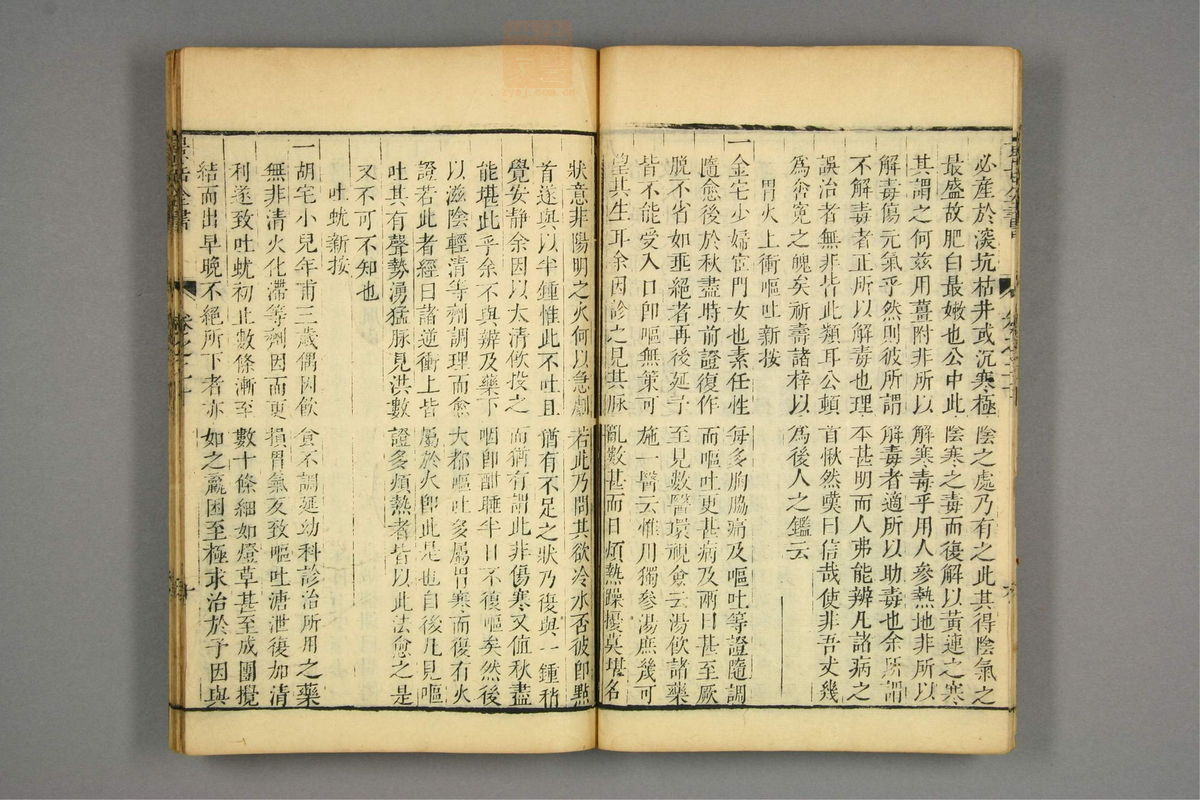 必産於深坑枯井或沉寒極陰之處乃有之此其得陰氣之
最盛故肥白最嫩也公中此陰寒之毒而復解以黃連之寒
其謂之何兹用薑附非所以解寒毒乎用人參熟地非所以
解毒傷元氣乎然則彼所謂解毒者適所以助毒也余所謂
不解毒者正所以解毒也理本甚明而人弗能辨凡諸病之
誤治者無非皆此類耳公頓首愀然嘆曰信哉使非吾丈幾
為含寃之魄矣祈壽諸梓以為後人之鑑云
胃火上衝嘔吐新按
一金宅少婦宦門女也素任性每多胸脇痛及嘔吐等證隨調
隨愈後於秋盡時前證復作而嘔吐更甚病及兩日甚至厥
脱不省如垂絶者再後延予至見數醫環視僉云湯飲諸藥
皆不能受入口即嘔無策可施一醫云惟用獨參湯庶幾可
望其生耳余因診之見其脉亂數甚而且煩熱躁擾莫堪名
狀意非陽明之火何以急劇若此乃問其欲冷水否彼即點
首遂與以半鍾惟此不吐且猶有不足之狀乃復與一鍾稍
覺安静余因以太清飲投之而猶有謂此非傷寒又值秋盡
能堪此乎余不與辨及藥下咽即酣睡半日不復嘔矣然後
以滋陰輕清等劑調理而愈大都嘔吐多屬胃寒而復有火
證若此者經曰諸逆衝上皆屬於火即此是也自後凡見嘔
吐其有聲勢湧猛脉見洪數證多煩熱者皆以此法愈之是
又不可不知也
吐蚘新按
一胡宅小兒年甫三歲偶因飲食不調延幼科診治所用之藥
無非清火化滯等劑因而更損胃氣反致嘔吐溏泄後加清
利遂致吐蚘初止數條漸至數十條細如燈草甚至成團攪
結而出早晚不絶所下者亦如之羸困至極求治於予因與